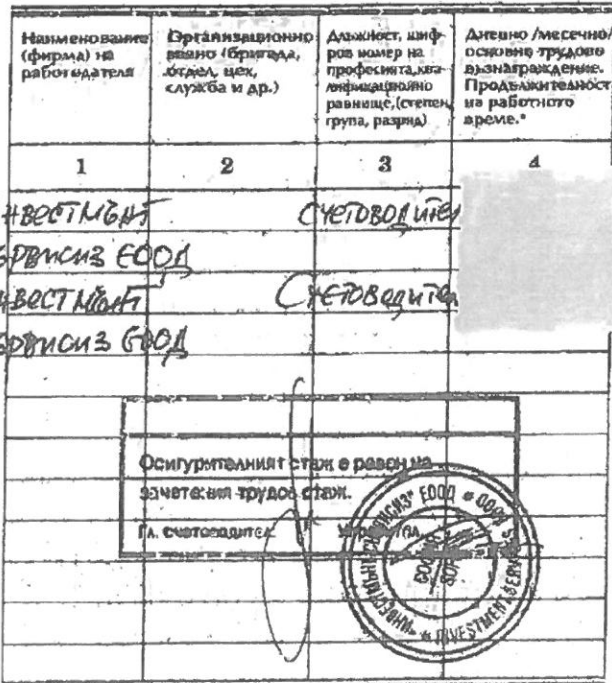 Наименование (фирма) на работодателя
Организационно звено (бригада, отдел, цех, служба и др.)
Длъжност, шифров номер на професията, квалификационно равнище, (степен, група, разряд)
Дневно /месечно/ основно трудово възнаграждение. Продължителност на работното време.*
1 2 3 4
нвестмънт Счетоводител
ървисиз ЕООД
нвестмънт Счетоводител
ървисиз ЕООД
Осигурителният стаж е равен на
зачетения трудов стаж.
Гл. счетоводител
"ИНВЕСТМЪНТ СЪРВИСИЗ" ЕООД
INVESTMENT SERV